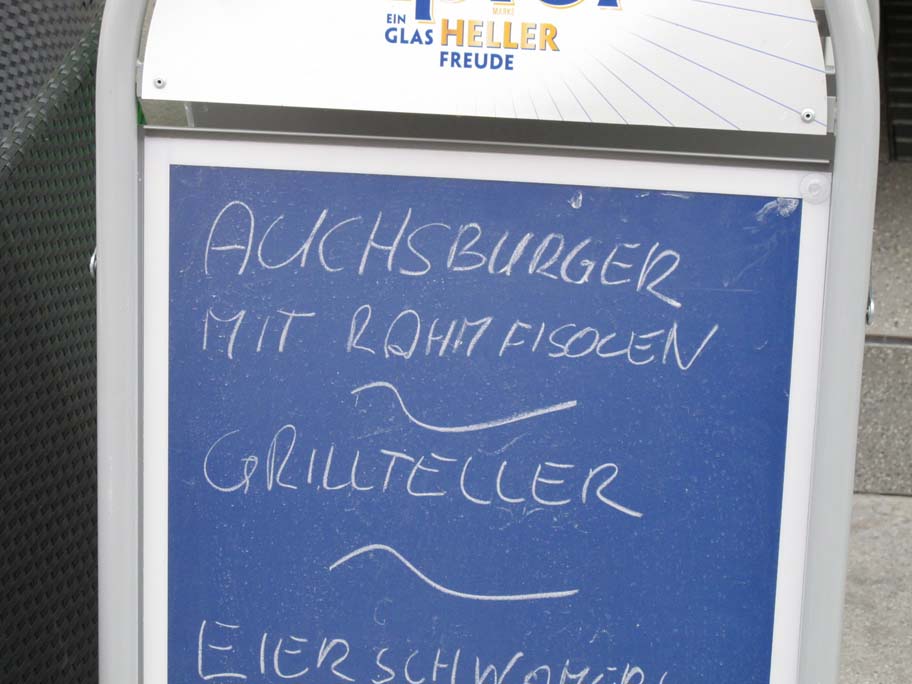 MARKE
EIN
GLAS HELLER
FREUDE
AUCHSBURGER
MIT RAHMFISOLEN
GRILLTELLER